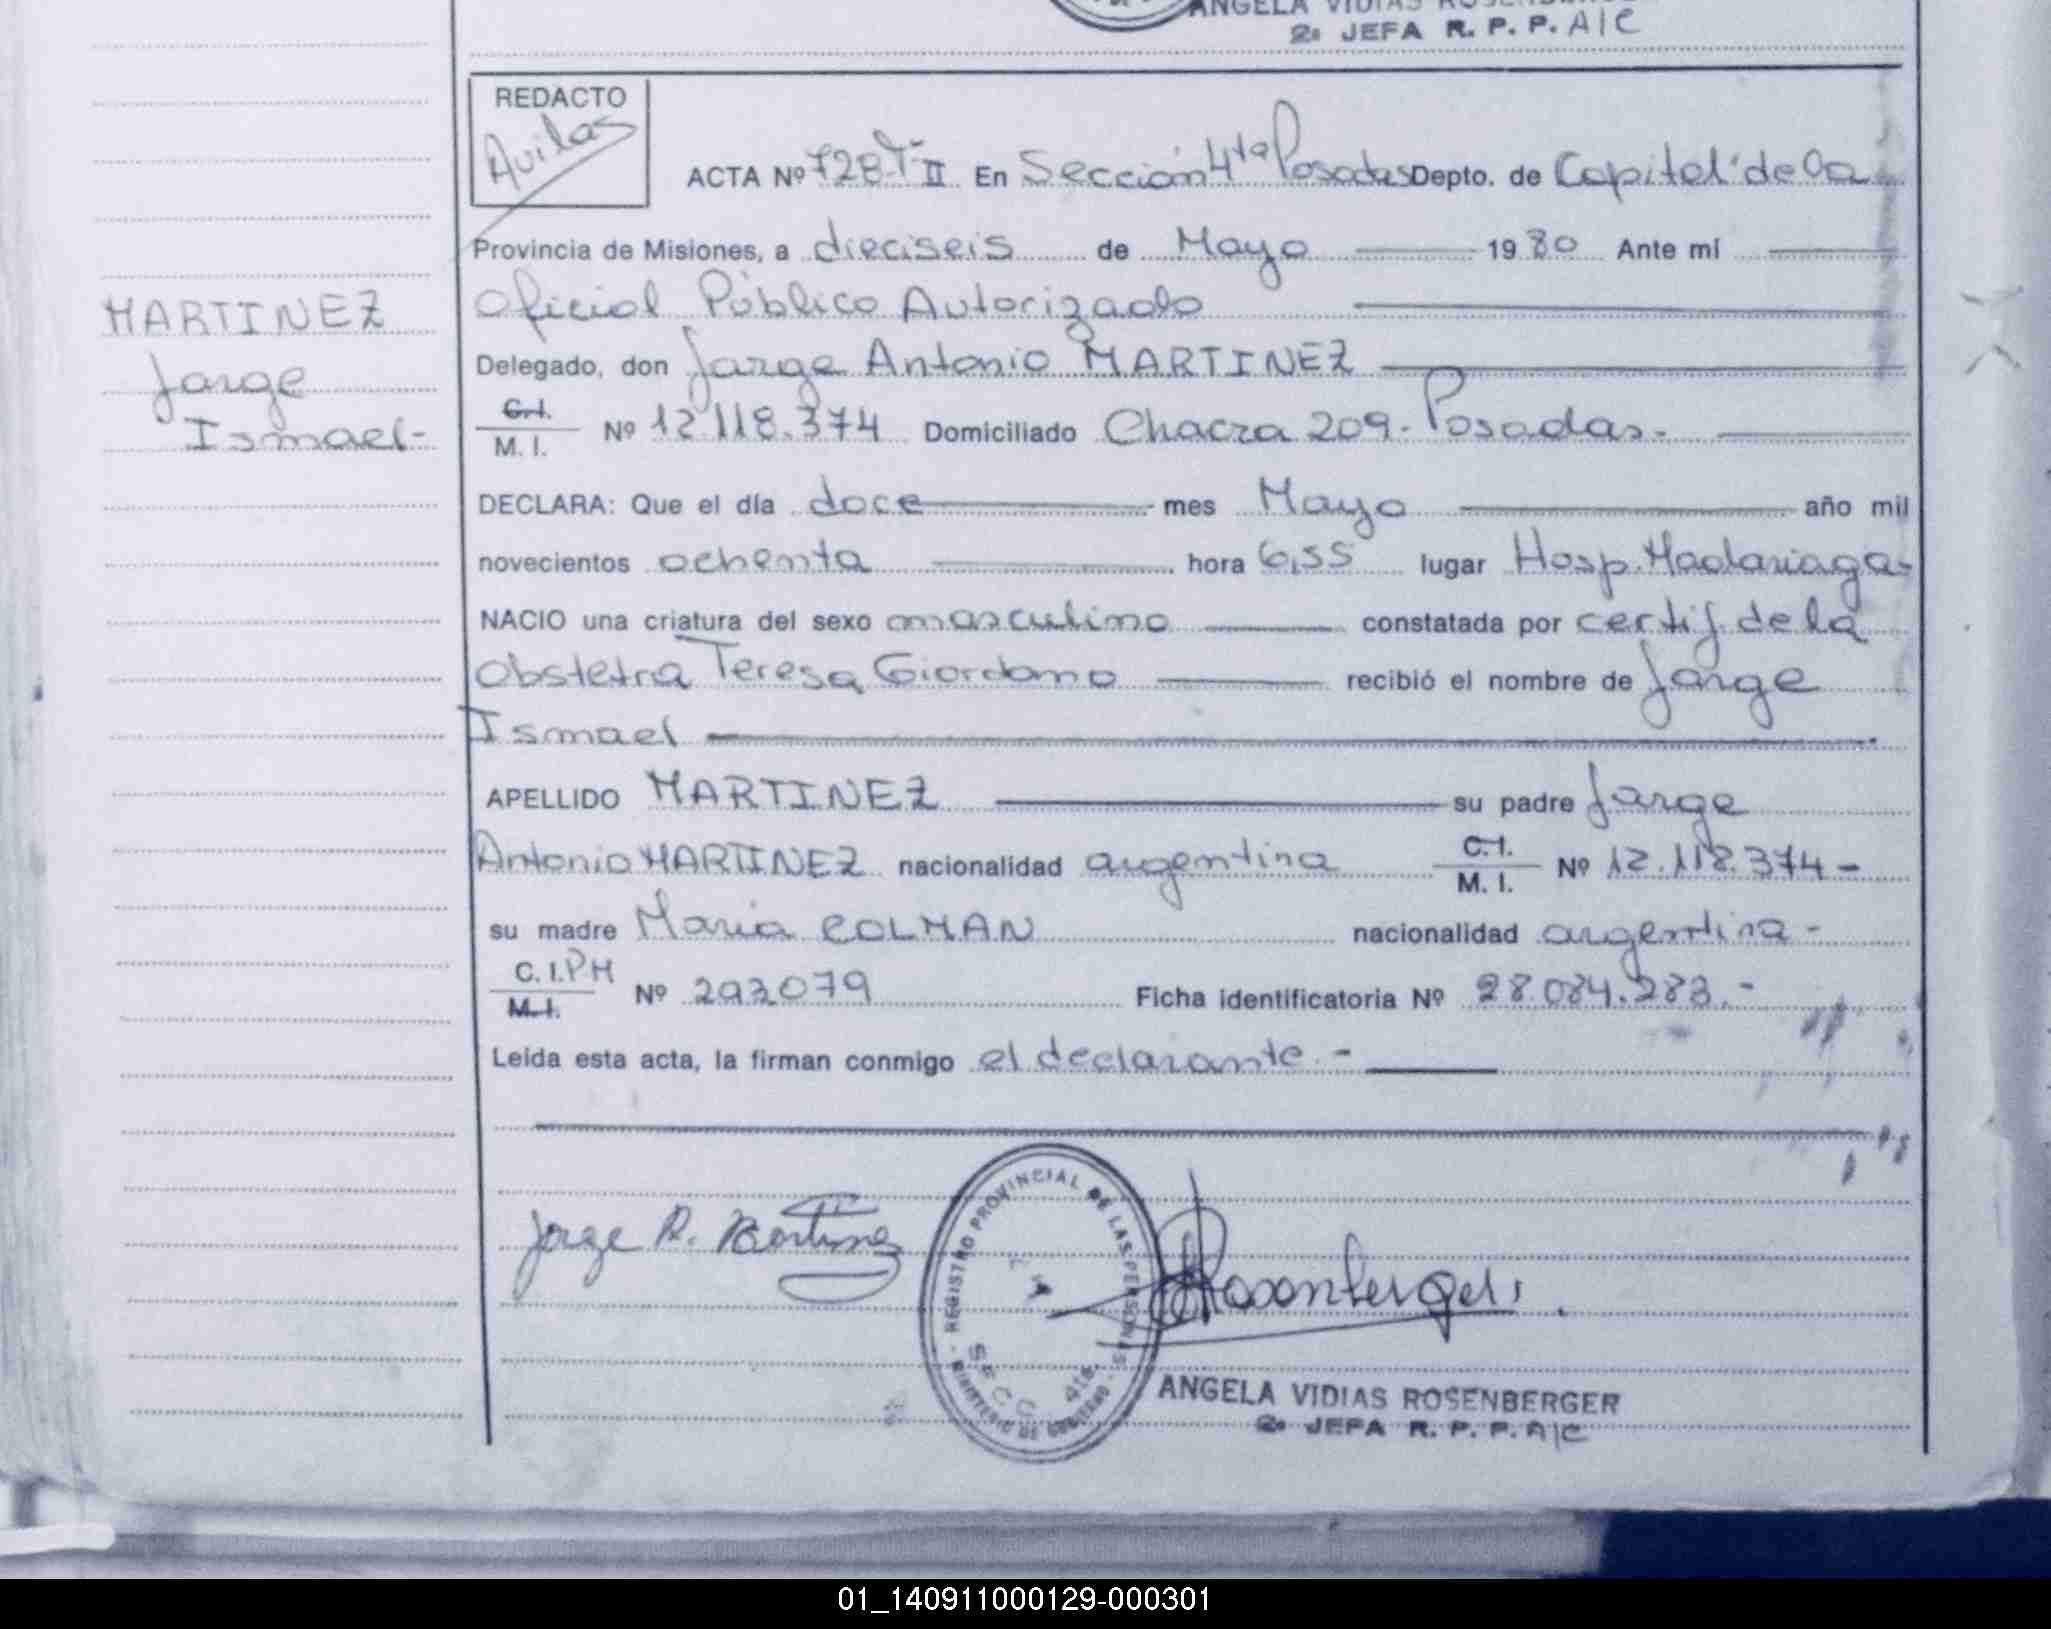 ANGELA VIDIAS ROSENBERGER
2º JEFA R. P. P. A/C
REDACTO
Avilas
ACTA Nº 728 T-II En Sección 4ta Posadas Depto. de Capital de la
Provincia de Misiones, a dieciseis de Mayo 1980 Ante mí
Oficial Público Autorizado
Delegado, don Jorge Antonio MARTINEZ
C.I. / M. I. Nº 12.118.374 Domiciliado Chacra 209. Posadas.-
DECLARA: Que el día doce mes Mayo año mil
novecientos ochenta hora 6,55 lugar Hosp. Madariaga-
NACIO una criatura del sexo masculino constatada por certif. de la
Obstetra Teresa Giordano recibió el nombre de Jorge
Ismael
APELLIDO MARTINEZ su padre Jorge
Antonio MARTINEZ nacionalidad argentina C.I. / M. I. Nº 12.118.374-
su madre Maria COLMAN nacionalidad argentina-
C. I. PM / M.I. Nº 293079 Ficha identificatoria Nº 28.084.283.-
Leida esta acta, la firman conmigo el declarante.-
MARTINEZ
Jorge
Ismael-
Jorge A. Martinez
REGISTRO PROVINCIAL DE LAS PERSONAS - MINISTERIO DE GOBIERNO -
SECC. 4ta
Rosenberger
ANGELA VIDIAS ROSENBERGER
2º JEFA R. P. P. A/C
01_140911000129-000301